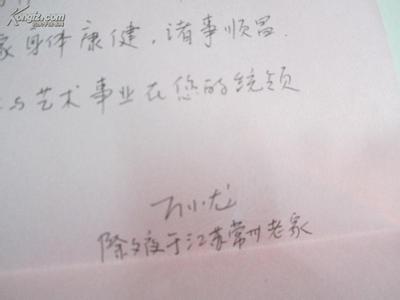 KongfZ.com
家身体康健，诸事顺昌.
与艺术事业在您的统领
小龙
除夕夜于江苏常州老家